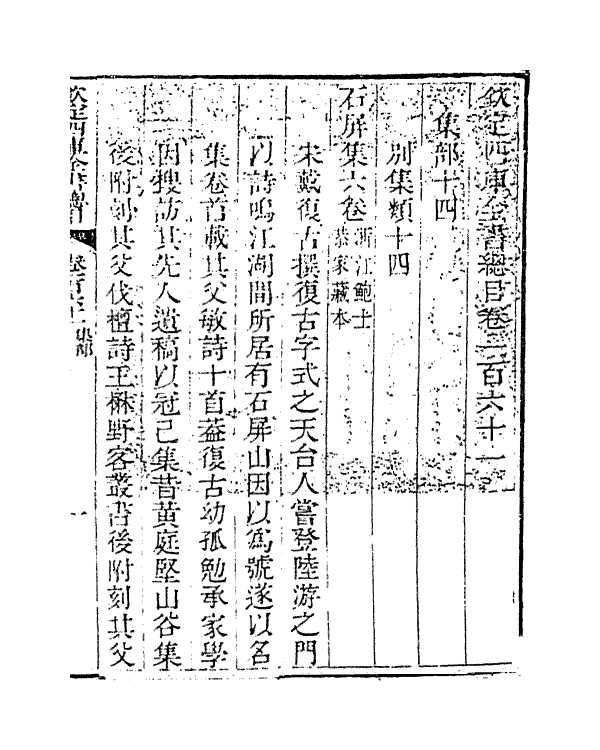 欽定四庫全書總目卷一百六十一
集部十四
別集類十四
石屏集六卷浙江鮑士恭家藏本
宋戴復古撰復古字式之天台人嘗登陸游之門
以詩鳴江湖間所居有石屏山因以為號遂以名
集卷首載其父敏詩十首葢復古幼孤勉承家學
因搜訪其先人遺稿以冠己集昔黃庭堅山谷集
後附刻其父伐檀詩王楙野客叢書後附刻其父
欽定四庫全書總目 卷一百六十一 集部 一